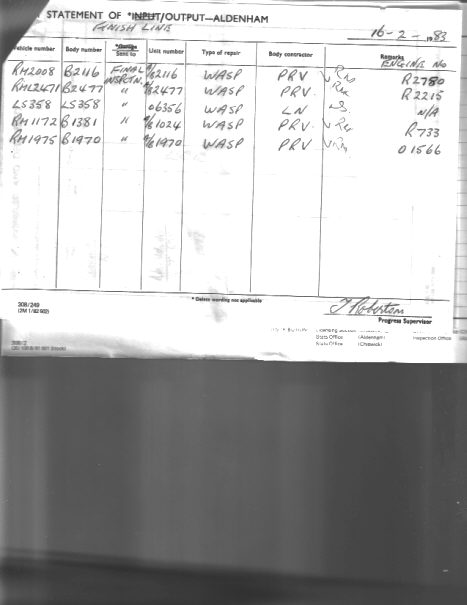 STATEMENT OF *INPUT/OUTPUT—ALDENHAM
FINISH LINE
16-2-1983
Vehicle number Body number *Garage Sent to Unit number Type of repair Body contractor Remarks
ENGINE NO
RM2008 B2116 FINAL INSPTN. 2116 WASP PRV R2780
RML2471 B2477 " 2477 WASP PRV. R2215
LS358 LS358 " 06356 WASP LN N/A
RM1172 B1381 " 1024 WASP PRV R733
RM1975 B1970 " 1970 WASP PRV 01566
* Delete wording not applicable
308/249
(2M 1/82 902)
T Robertson
Progress Supervisor
Licensing Section
Stats Office (Aldenham) Inspection Office
Stats Office (Chiswick)